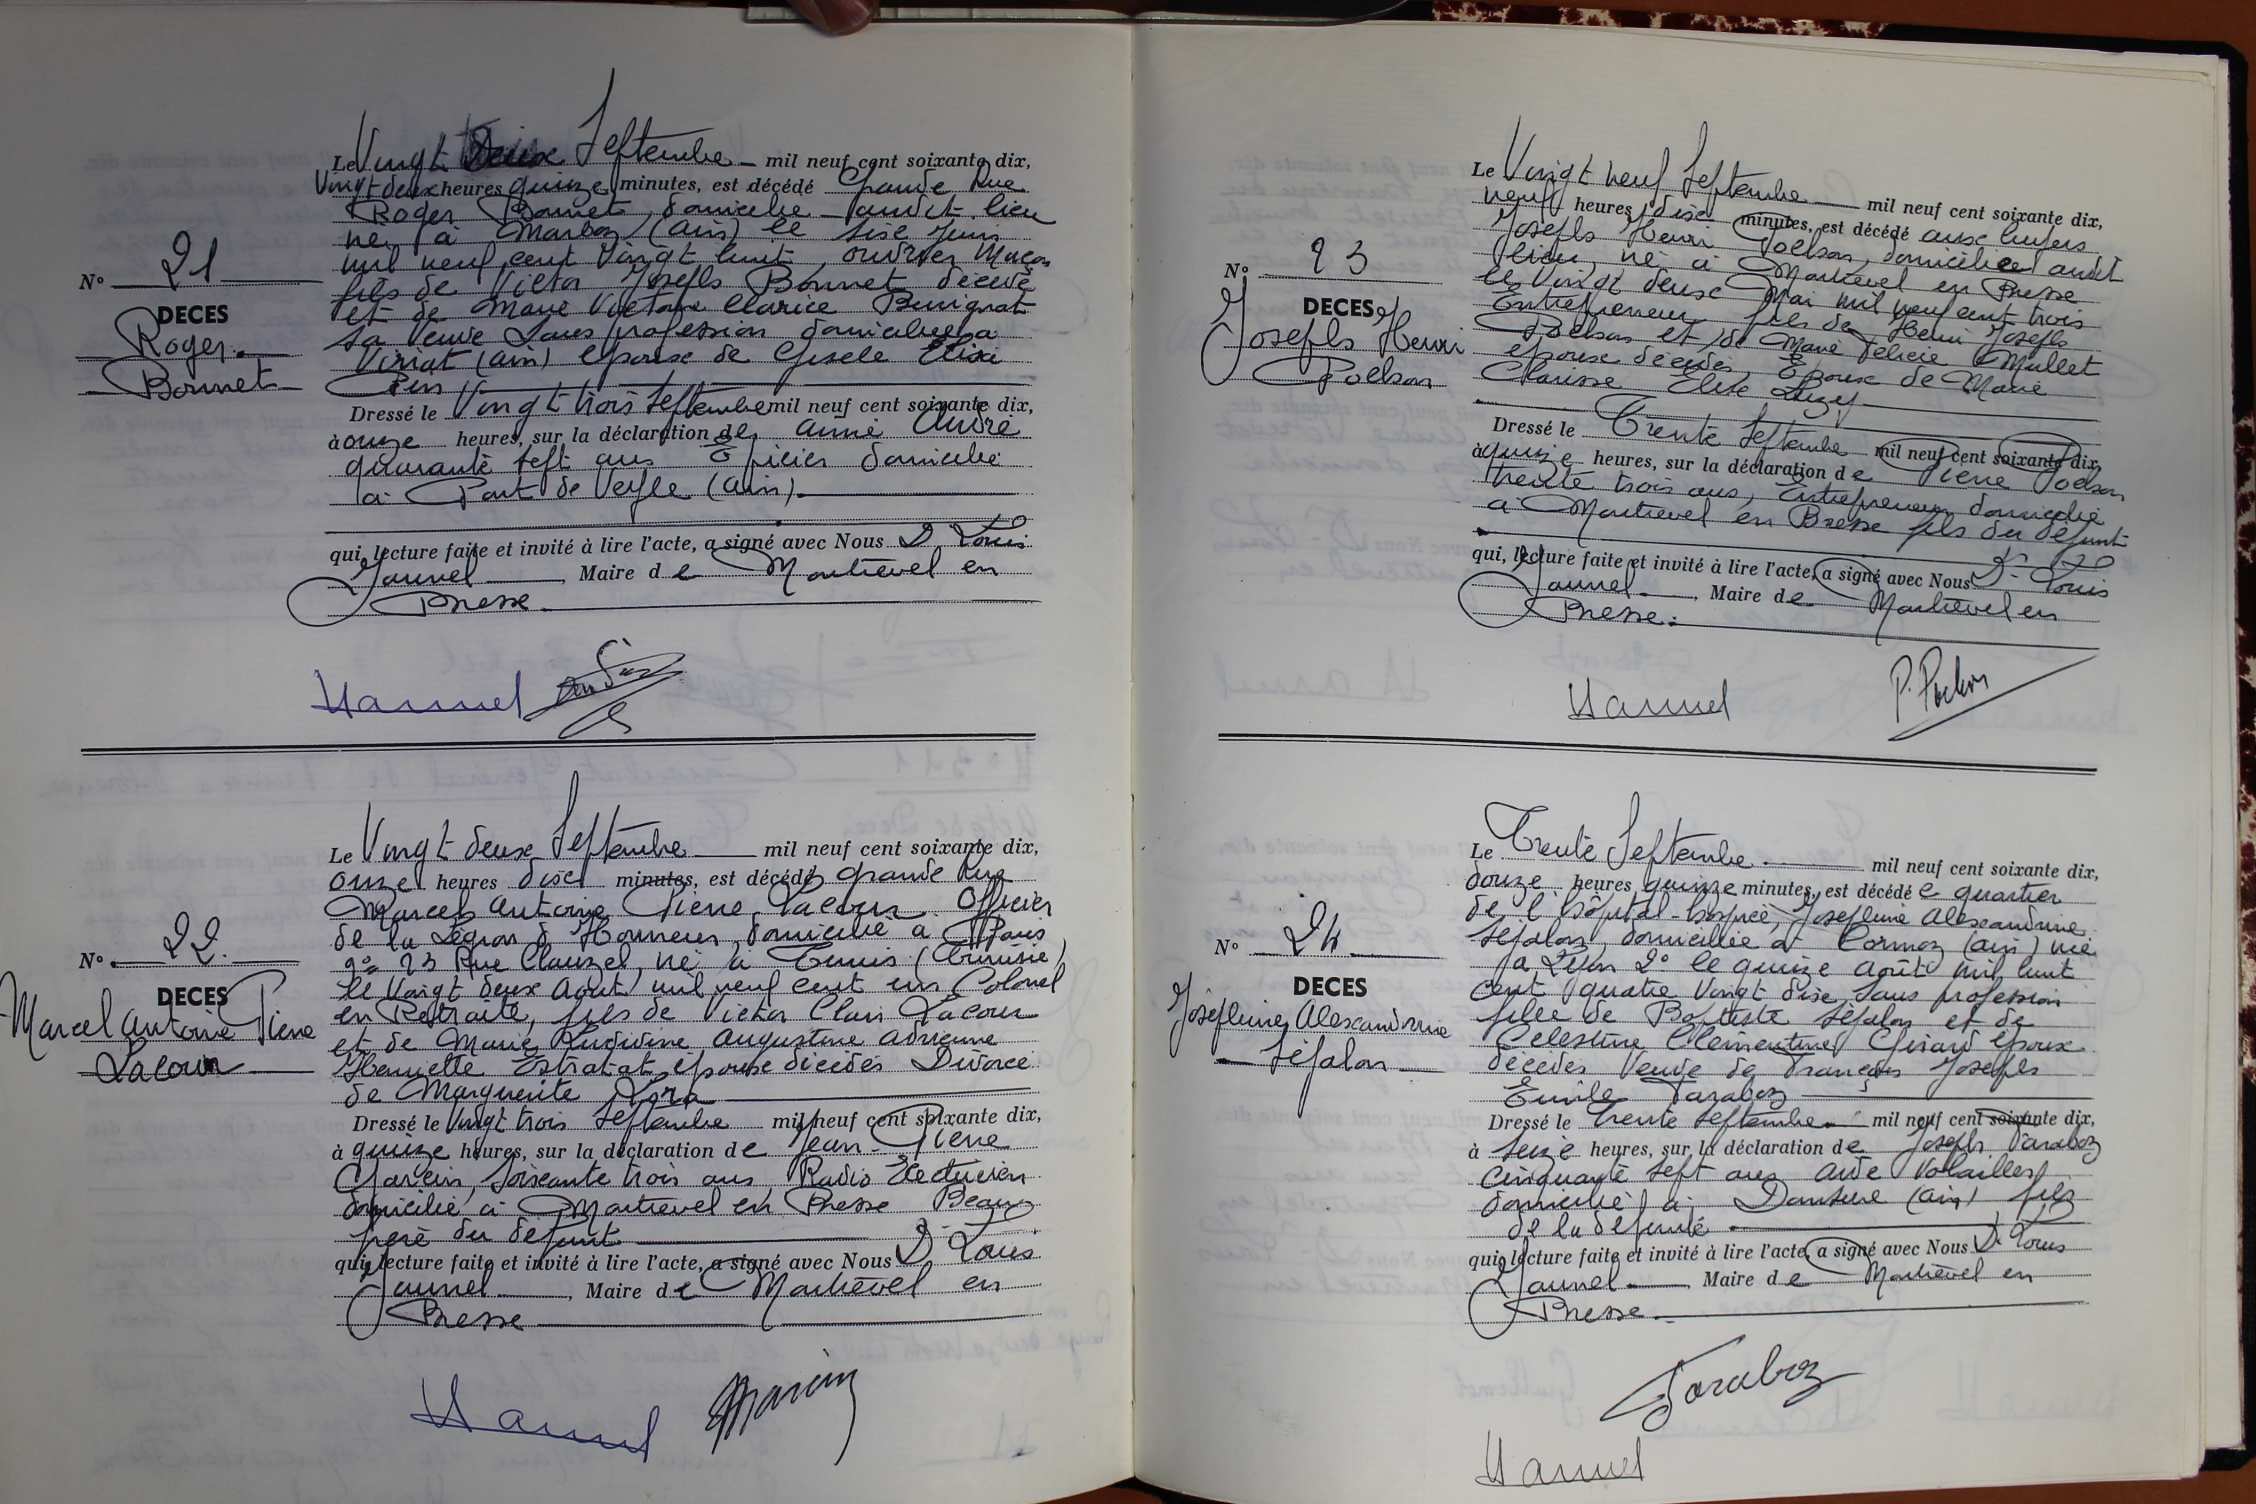 Le Vingt Deux Septembre mil neuf cent soixante dix,
Vingt deux heures quinze minutes, est décédé Grande Rue
Roger Bonnet, domicilié audit lieu
né à Marboz (Ain) le sise Juin
mil neuf cent vingt huit, ouvrier Maçon
fils de Victor Joseph Bonnet décédé
et de Marie Clarice
sa Veuve sans profession domiciliée à
Viriat (ain) époux de Gisèle
Pin
N° 21
DECES
Roger
Bonnet
Dressé le Vingt trois Septembre mil neuf cent soixante dix,
à onze heures, sur la déclaration de André
quarante sept ans Epicier domicilié
à Pont de Veyle (ain).
qui, lecture faite et invité à lire l'acte, a signé avec Nous D. Louis
Jaunel, Maire de Montrevel en
Bresse
Le Vingt deux Septembre mil neuf cent soixante dix,
onze heures dix minutes, est décédé Grande Rue
Marcel Antoine Pierre Lacour Officier
de la Légion d'Honneur, domicilié à Paris
23 Rue Clauzel, né à Tunis (Tunisie)
le Vingt deux Août mil neuf cent un Colonel
en Retraite, fils de Victor Clair Lacour
et de Marie Augustine Adrienne
Henriette Estratat épouse décédés Divorcé
de Marguerite
N° 22.
DECES
Marcel Antoine Pierre
Lacour
Dressé le Vingt trois Septembre mil neuf cent soixante dix,
à quinze heures, sur la déclaration de Jean-Pierre
soixante trois ans Radio Electricien
domicilié à Montrevel en Bresse Beau
père du défunt
qui, lecture faite et invité à lire l'acte, a signé avec Nous D. Louis
Jaunel, Maire de Montrevel en
Bresse
Le Vingt neuf Septembre mil neuf cent soixante dix,
neuf heures dix minutes, est décédé aux Luyers
Joseph Henri Pochon, domicilié audit
lieu, né à Montrevel en Bresse
le Vingt deux Mai mil neuf cent trois
Entrepreneur fils de Henri Joseph
Pochon et de Marie Félicie Mullet
épouse décédés, Epoux de Marie
Clarisse Elise
N° 23
DECES
Joseph Henri
Pochon
Dressé le Trente Septembre mil neuf cent soixante dix,
à quinze heures, sur la déclaration de Pierre Pochon
trente trois ans, Entrepreneur domicilié
à Montrevel en Bresse fils du défunt
qui, lecture faite et invité à lire l'acte, a signé avec Nous D. Louis
Jaunel, Maire de Montrevel en
Bresse.
P. Pochon
Le Trente Septembre mil neuf cent soixante dix,
douze heures quinze minutes, est décédée quartier
de l'hôpital-hospice, Joséphine Alexandrine
Séjalon, domiciliée à Cormoz (ain) née
à Lyon 2° le quinze Août mil huit
cent quatre Vingt dix, sans profession
fille de Baptiste Séjalon et de
Célestine Clémentine Girard époux
décédés Veuve de François Joseph
Emile Paraboz
N° 24
DECES
Joséphine Alexandrine
Séjalon
Dressé le Trente Septembre mil neuf cent soixante dix,
à seize heures, sur la déclaration de Joseph Paraboz
cinquante sept ans aide Volailler
domicilié à Domsure (ain) fils
de la défunte
qui, lecture faite et invité à lire l'acte, a signé avec Nous D. Louis
Jaunel, Maire de Montrevel en
Bresse.